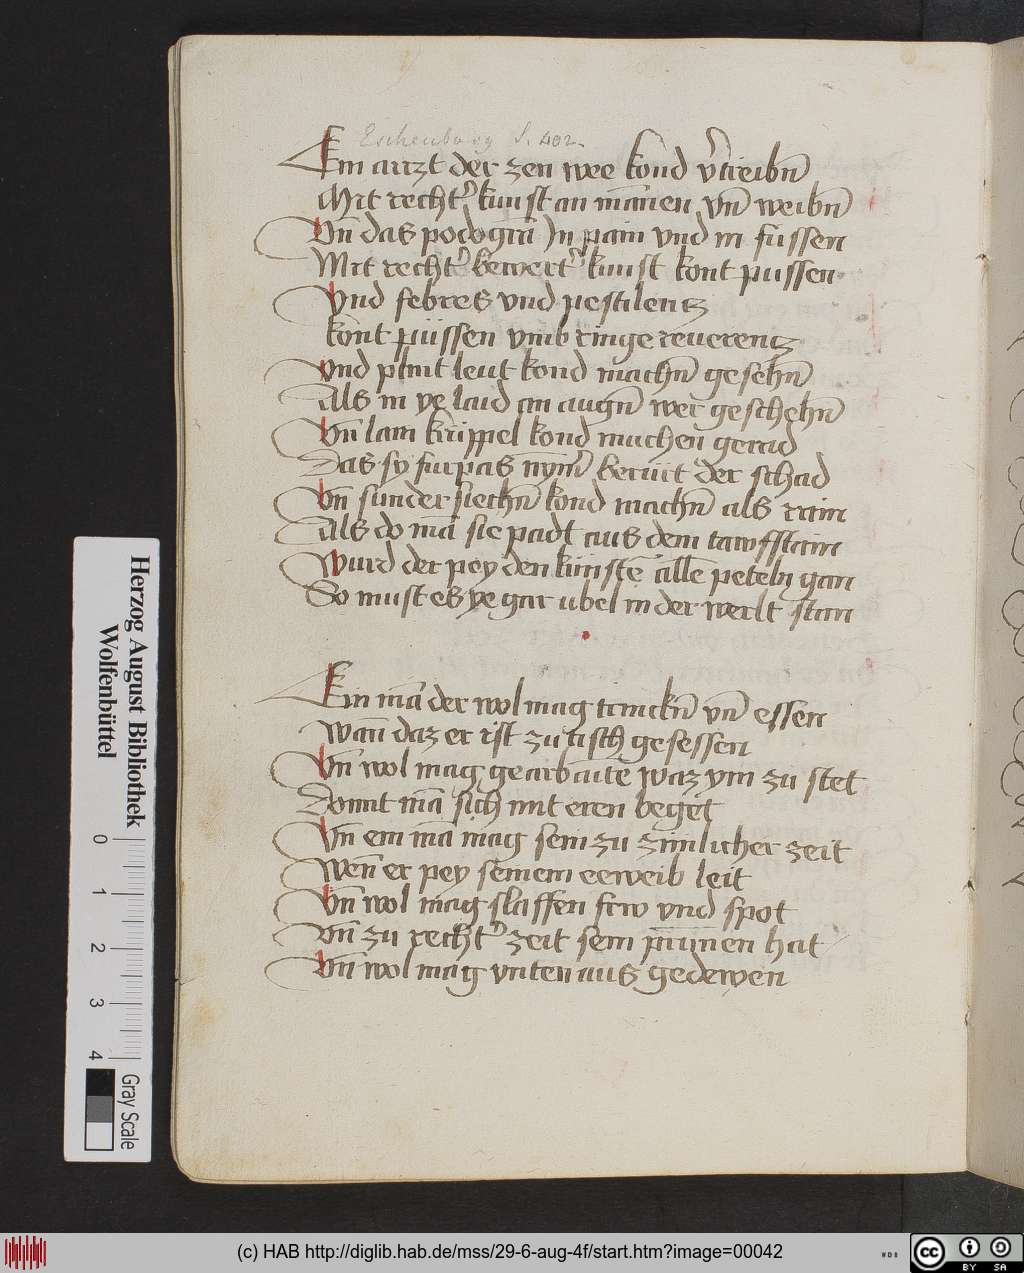 Eschenburg S. 402.
Ein artzt der zen wee kond vͦtreibn̄
Mit rechtͦ kunst an mānen vn̄ weibn̄
Vn̄ das podogrā Jn pain vnd in fussen
Mit rechtͦ bewertͦ kunst kont pussen
Vnd febres vnd pestilentz
kont püssen vmb ringe reuerentz
Vnd plint leut kond machn̄ gesehn̄
Als in ye laid an augn̄ wer geschehn̄
Vn̄ lam krüppel kond machen gerad
Das sy furpas nymͦ berürt der schad
Vn̄ sunder siechn̄ kond machn̄ als rain
Als do mā sie padt aus dem tawfstain
Wurd der pey den künstē alle peteln gan
So must es ye gar ubel in der werlt stan
Ein mā der wol mag trinckn̄ vn̄ essen
Wan̄ daz er ist zu tisch gesessen
Vn̄ wol mag gearbaitē waz ym zu stet
Domit mā sich mit eren beget
Vn̄ ein mā mag sein zu zimlicher zeit
Wen̄ er pey seinem eeweib leit
Vn̄ wol mag slaffen frw vnd spot
Vn̄ zu rechtͦ zeit sein prunnen hat
Vn̄ wol mag vnten aus gedewen
Herzog August Bibliothek
Wolfenbüttel
0 1 2 3 4
Gray Scale
(c) HAB http://diglib.hab.de/mss/29-6-aug-4f/start.htm?image=00042
WDB
cc BY SA